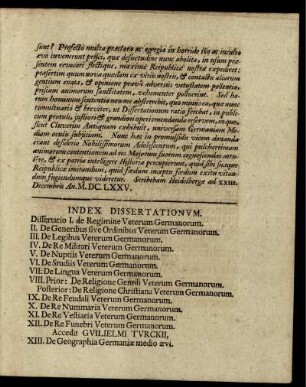 sunt? Profectò multa præclara ac egregia in horrido isto ac inculto
ævo invenerunt prisci, quæ desuetudine nunc abolita, in usum præ-
sentem revocari flectique, maximè Reipublicæ nostræ expediret:
præsertim quum nova quædam ex vitio nostris, & contactu aliarum
gentium enata, & opinione pravâ adventâ vetustatem pollentia,
priscam animorum sanctitatem, vehementer polluerint. Sed ha-
rum hominum sententia
tumultuarii & breviter, ut Dissertationum ratio ferebat, in publi-
cum protuli, justiori & grandiori operi commendanda reservem, in quo,
sicut Cluverius Antiquam exhibuit, universam Germaniam Me-
diam oculis subjiciam. Nunc hæc in promulside vicem dimanda
erant desiderio Nobilissimorum Adolescentum, qui pulcherrimum
animum contentionem ad res Majorum suorum cognoscendas attu-
lêre, & ex patria intelligere Historia percuperent, quid sibi suæque
Reipublicæ imitandum, quid fœdum inceptu fœdum exitu vitan-
dum fugiendumque videretur. Scribebam Heidelbergæ ad XXIII.
Decembris An. M. DC. LXXV.
INDEX DISSERTATIONVM.
Dissertatio I. de Regimine Veterum Germanorum.
II. De Generibus sive Ordinibus Veterum Germanorum.
III. De Legibus Veterum Germanorum.
IV. De Re Militari Veterum Germanorum.
V. De Nuptiis Veterum Germanorum.
VI. De Studiis Veterum Germanorum.
VII. De Lingua Veterum Germanorum.
VIII. Prior: De Religione Gentili Veterum Germanorum.
Posterior: De Religione Christiana Veterum Germanorum.
IX. De Re Feudali Veterum Germanorum.
X. De Re Nummaria Veterum Germanorum.
XI. De Re Vestiaria Veterum Germanorum.
XII. De Re Funebri Veterum Germanorum.
Accedit GVILIELMI TVRCKII,
XIII. De Geographia Germaniæ medio ævi.